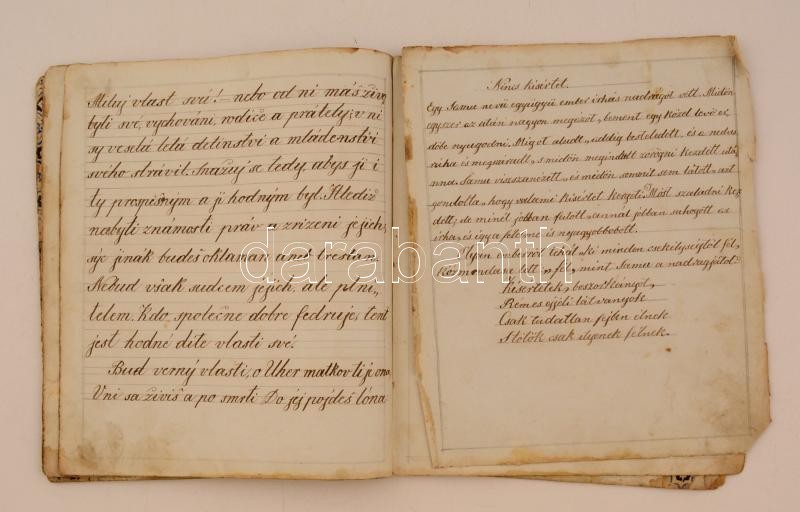 Miluj vlast svú! nebo od ni máš život
byli své, vychování, rodiče a prátely; v ni
sy veselá letá detinstvi a mládenstvi
svého strávil. Snažuj se tedy, abys ji i
ty prospešným a ji hodným byl. Hlediž
nabyti známosti práv a zrizeni jejich,
jinák budeš oklamán a neb trestán.
Nebud však sudcem jejich, ale plni„
telem. Kdo, společne dobre fedruje, tent
jest hodné díte vlasti své!
Bud verný vlasti, o Uher matkov ti ji ona
V ni sa živiš a po smrti Do jej pojdeš lóna
Nincs kisértet.
Egy Samu nevü együgyü ember irhás nadrágot vett. Midőn
egyszer az után nagyon megázott, bement egy közel levő
nyugodni. Migot aludt, addig besteledett, és a nedves
ruha és megszáradt, s midőn megindult zörögni kezdett
Samu visszanézett, és midőn senkit sem látott, azt
gondolta, hogy valami kisértet kergeti. Most szaladni kez
dett; de minél jobban futott, annál jobban suhogott az
irha, és igy a félelme is nagyobbodott.
Ilyen emberről tehát, ki minden csekélységtől fél,
mint Samu a nadrágjától.
Kisértetek, boszorkányok,
Rémes éjjeli látványok
Csak tudatlan fejben élnek
S tőlök csak ilyenek félnek.
darabanth